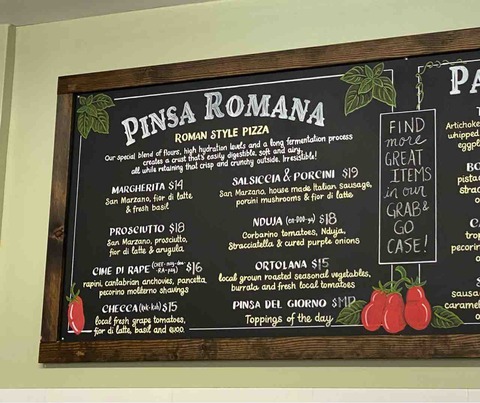 PINSA ROMANA
ROMAN STYLE PIZZA
Our special blend of flours, high hydration levels and a long fermentation process
creates a crust that's easily digestible, soft and airy,
all while retaining that crisp and crunchy outside. Irresistible!
MARGHERITA $14
San Marzano, fior di latte
& fresh basil
PROSCIUTTO $18
San Marzano, prosciutto,
fior di latte & arugula
CIME DI RAPE $16
rapini, cantabrian anchovies, pancetta,
pecorino moliterno shavings
CHECCA (kek-kah) $15
local fresh grape tomatoes,
fior di latte, basil and evoo
SALSICCIA & PORCINI $19
San Marzano, house made Italian sausage,
porcini mushrooms & fior di latte
NDUJA (en-DOO-ya) $18
Corbarino tomatoes, Nduja,
Stracciatella & cured purple onions
ORTOLANA $15
local grown roasted seasonal vegetables,
burrata and fresh local tomatoes
PINSA DEL GIORNO $MP
Toppings of the day
FIND
more
GREAT
ITEMS
in our
GRAB &
GO
CASE!
PA
Artichoke
whipped
eggpl
BO
pista
stra
CA
pecorin
S
sausa
carame